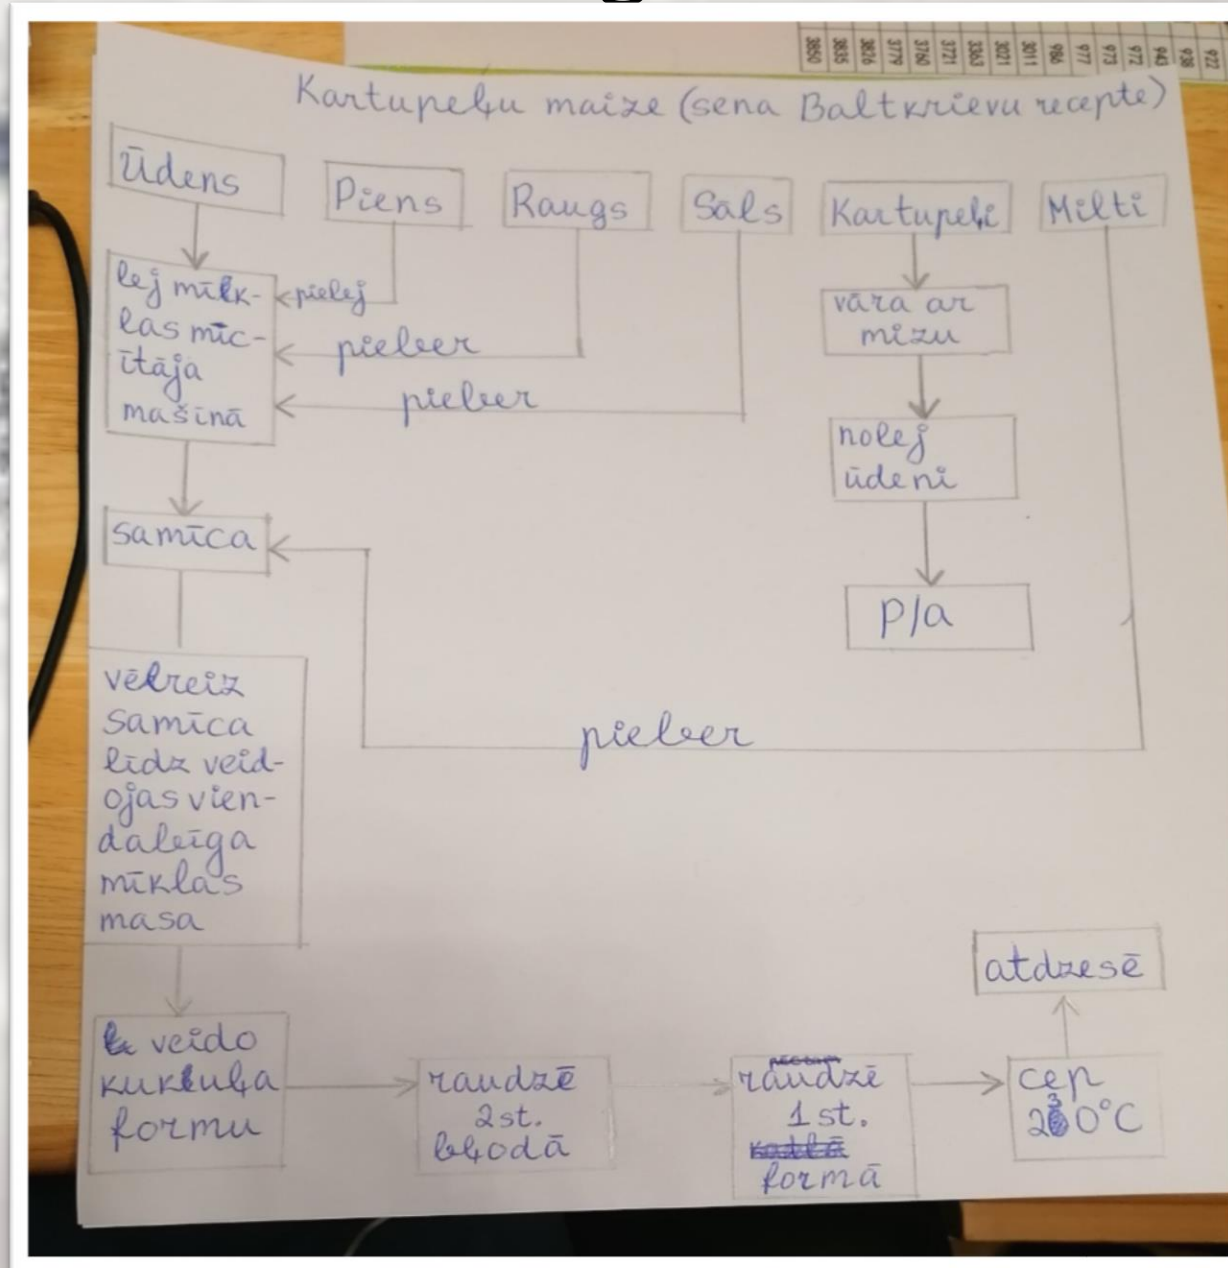 3850 3835 3826 3779 3760 3721 3363 3021 3011 986 977 973 972 943 938 922
Kartupeļu maize (sena Baltkrievu recepte)
Ūdens
Piens
Raugs
Sāls
Kartupeļi
Milti
lej mīlk-
las mīc-
ītāja
mašīnā
pielej
pieber
pieber
vāra ar
mizu
nolej
ūdeni
P/a
samīca
pieber
vēlreiz
samīca
līdz veid-
ojas vien-
dabīga
mīklas
masa
veido
kukuļa
formu
raudzē
2 st.
bļodā
raudzē
1 st.
formā
cep
230°C
atdzesē